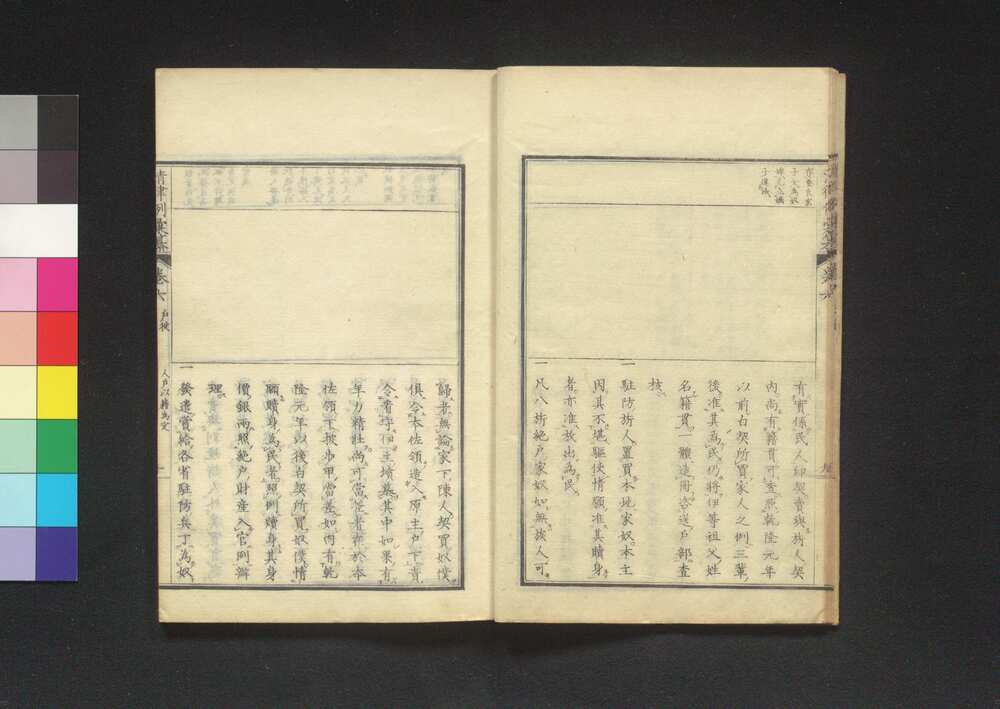 存養良家
子女為奴
子違減
有實係民人印契賣與旗人契
內尚有籍貫可查照乾隆元年
以前白契所買家人之例三輩
後准其為民仍將伊等祖父姓
名籍貫一體造冊咨送戶部查
核
一駐防旗人置買本地家奴本主
因其不堪驅使情願准其贖身
者亦准放出為民
一凡八旗絕戶家奴如無族人可
歸者無論家下陳人契買奴僕
俱令本佐領造入原主戶下責
令看守伊主墳墓其中如果有
年力精壯尚可當差者許於本
佐領下披步甲當差如內有乾
隆元年以後白契所買奴僕情
願贖身為民者照例贖身其身
價銀兩照絕戶財產入官例辦
理
一發遣賞給各省駐防兵丁為奴
清律例彙纂
卷六
戶役
人戶以籍為定
一